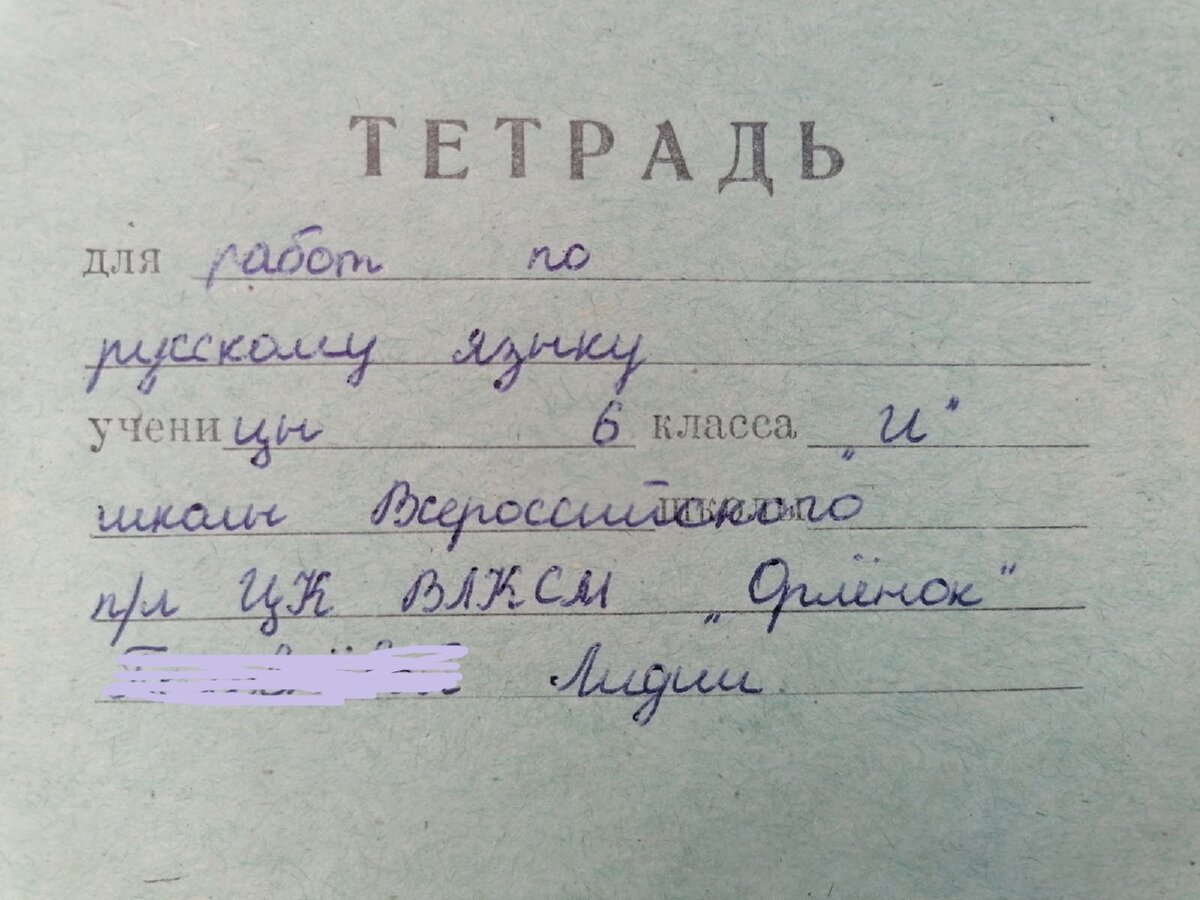 ТЕТРАДЬ
для работ по
русскому языку
ученицы 6 класса „И“
школы Всероссийского школы
п/л ЦК ВЛКСМ „Орлёнок“
Лидии